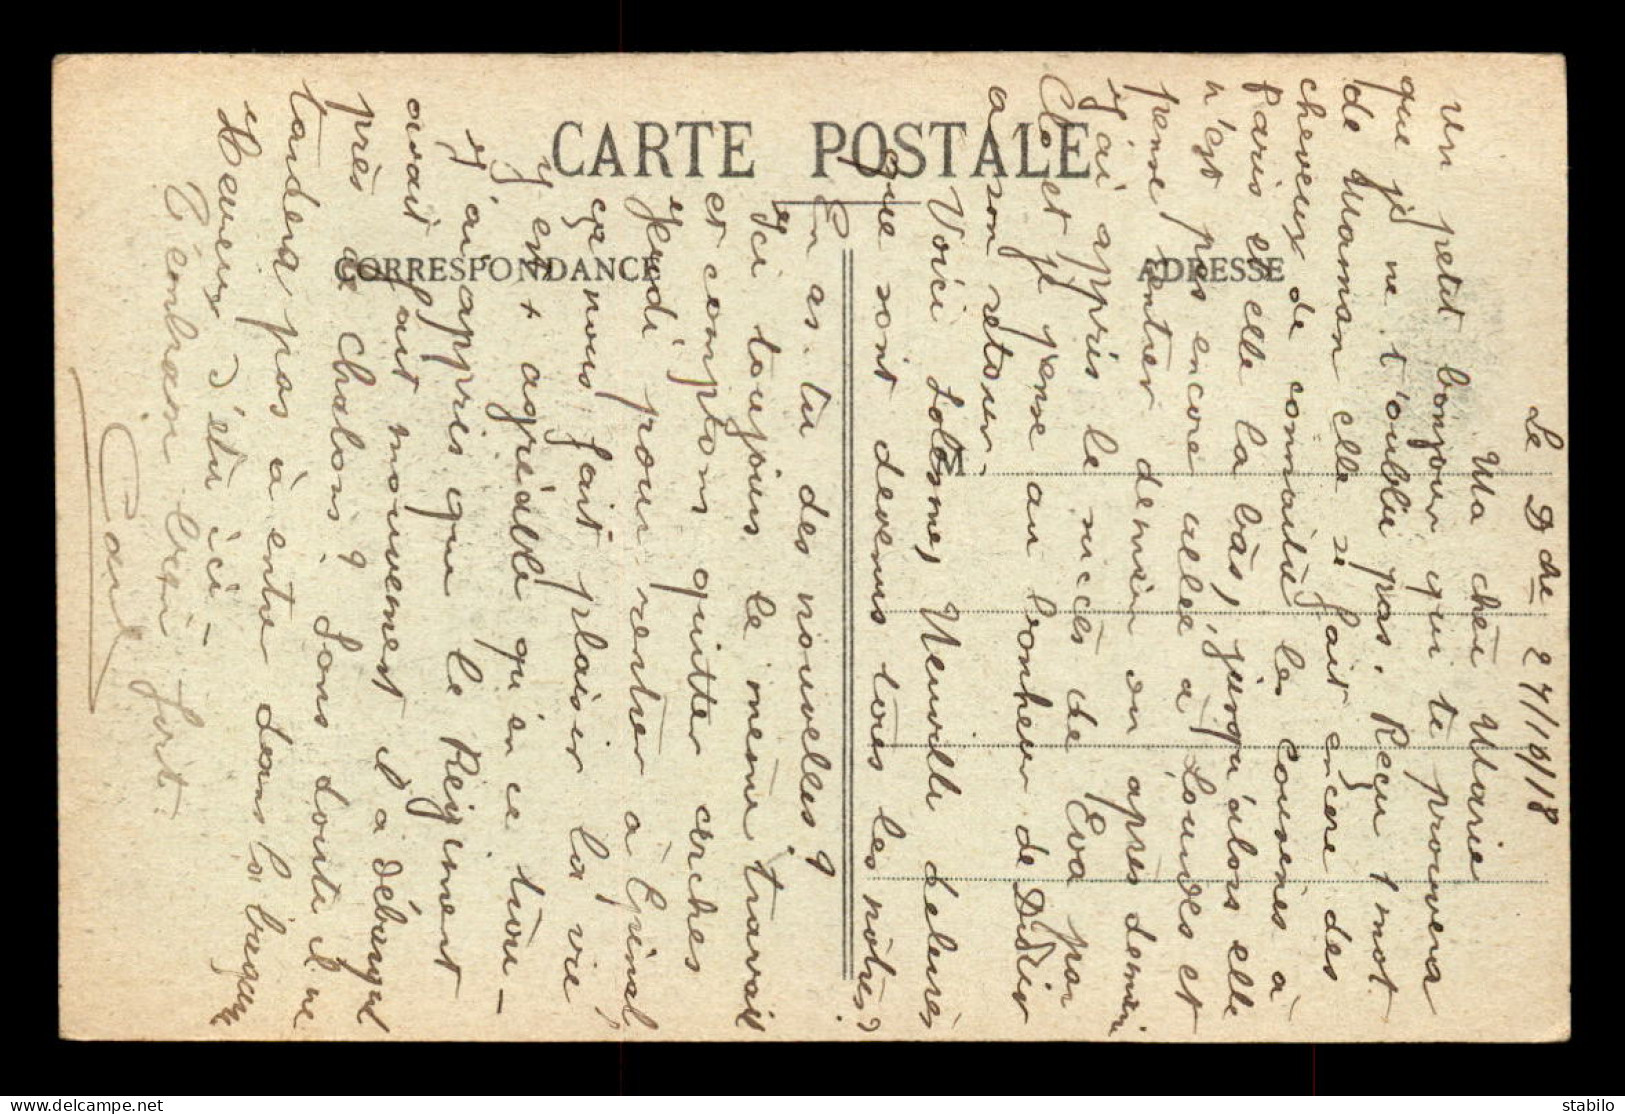 CARTE POSTALE
CORRESPONDANCE
ADRESSE
M
Le Dche 27/10/18
Ma chère Marie
Un petit bonjour qui te prouvera
que je ne t'oublie pas. Reçu 1 mot
de Maman elle se fait encore des
cheveux de connaître les Cousines à
Paris et elle là bas, jusqu'alors elle
n'est pas encore allée à Lourdes et
pense rentrer demain ou après demain
J'ai appris le succès de Eva par
Clo et je pense au bonheur de Didier
à son retour.
Voici Solesmes, Neuville
que sont devenus tous les nôtres?
En as-tu des nouvelles?
Ici toujours le même travail
et comptons quitter Arches
Jeudi pour rentrer à Epinal,
ça nous fait plaisir la vie
y est + agréable qu'en ce trou -
J'ai appris que le Régiment
avait fait mouvement et a débarqué
près de Chalons? Sans doute il ne
tardera pas à entrer dans la bagarre
Heureux d'être ici -
T'embrasse bien fort.
stabilo